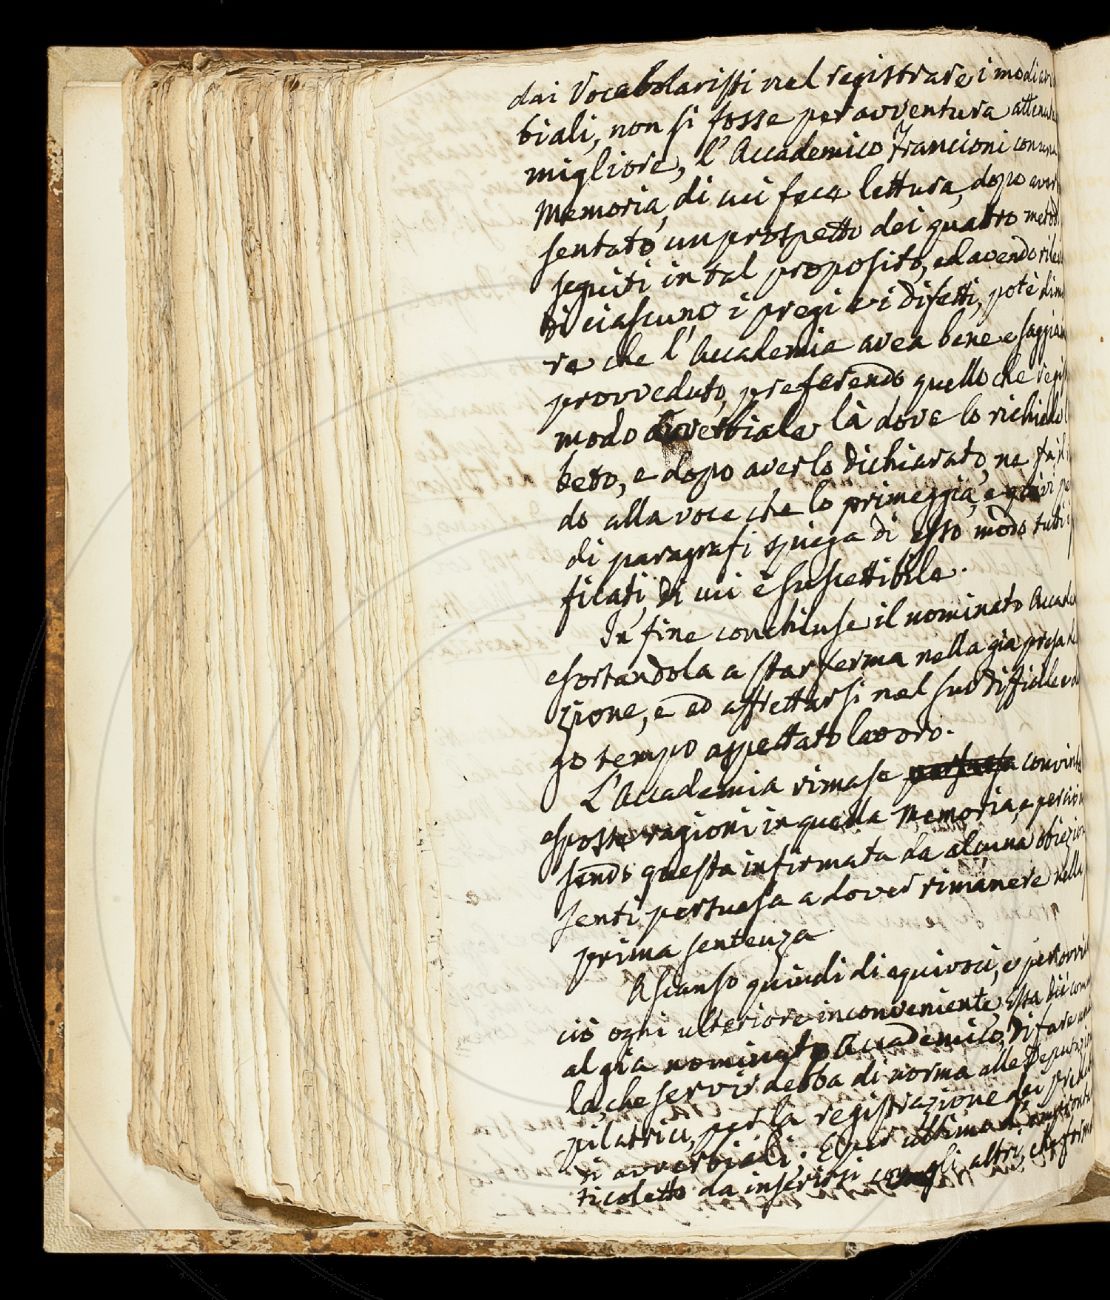 dai Vocabolaristi nel registrare i modi av
biali, non si fosse peravventura attenuta
migliore, l'Accademico Francioni con una
Memoria, di cui fece lettura, dopo aver
sentato un prospetto dei quattro metod
seguiti in tal proposito, ed avendo rile
di ciascuno i pregi e i difetti, potè dim
re che l'Accademia avea bene e saggiam
provveduto, preferendo quello che regis
modo avverbiale là dove lo richiede l
beto, e dopo averlo dichiarato, ne fa
do alla voce che lo primeggia, e quivi pe
di paragrafi spiega di esso modo tutti i
ficati, di cui è suscettibile.
In fine conchiuse il nominato Accade
esortandola a star ferma nella già presa
zione, e ad affrettarsi nel suo difficile e
go tempo aspettato lavoro.
L'Accademia rimase convinta
esposte ragioni in quella Memoria, e perciò
sendo questa infirmata da alcuna obiezion
senti persuasa a dover rimanere nella
prima sentenza.
A scanso quindi di equivoci, e per ovvi
ciò ogni ulteriore inconveniente, Essa diè com
al già nominato Accademico, di fare una
la che servir debba di norma alle Deputazion
pilatrici, per la registrazione dei pred
di avverbiali. E per ultimo
ticoletto da inserirsi cogli altri, che form